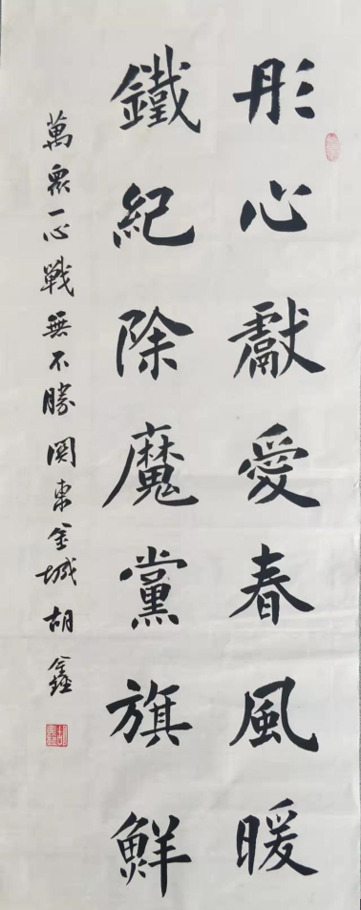 彤心獻愛春風暖
鐵紀除魔黨旗鮮
萬眾一心戰無不勝 関東金城 胡鑫